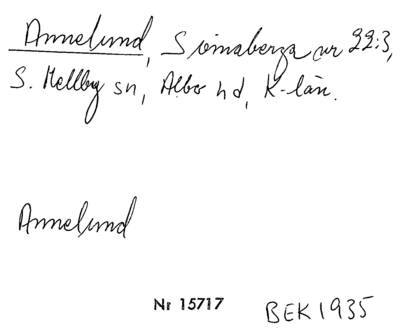 Annelund, Simaberga nr 22:3,
S. Mellby sn, Albo hd, K-län.
Annelund
Nr 15717 BEK 1935